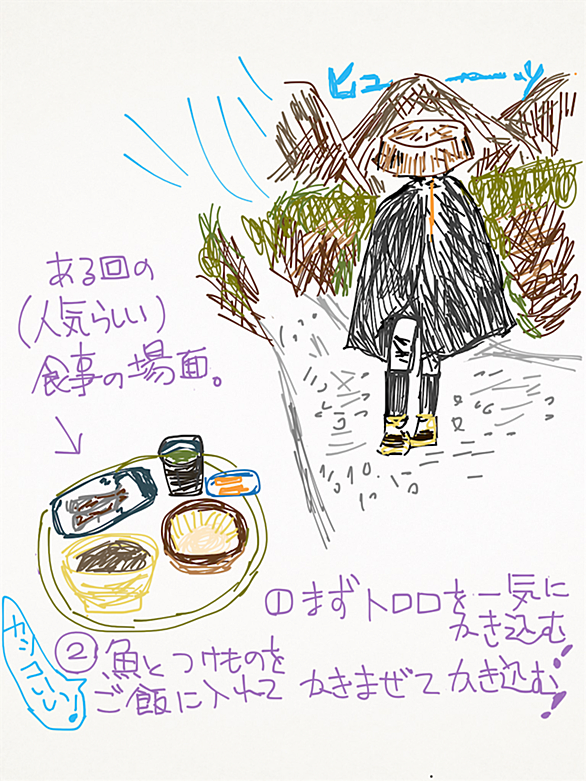 ヒューーッ
ある回の
(人気らしい)
食事の場面。
①まずトロロを一気に
かき込む!
カッコいい!
②魚とつけものを
ご飯に入れて かきまぜて かき込む!